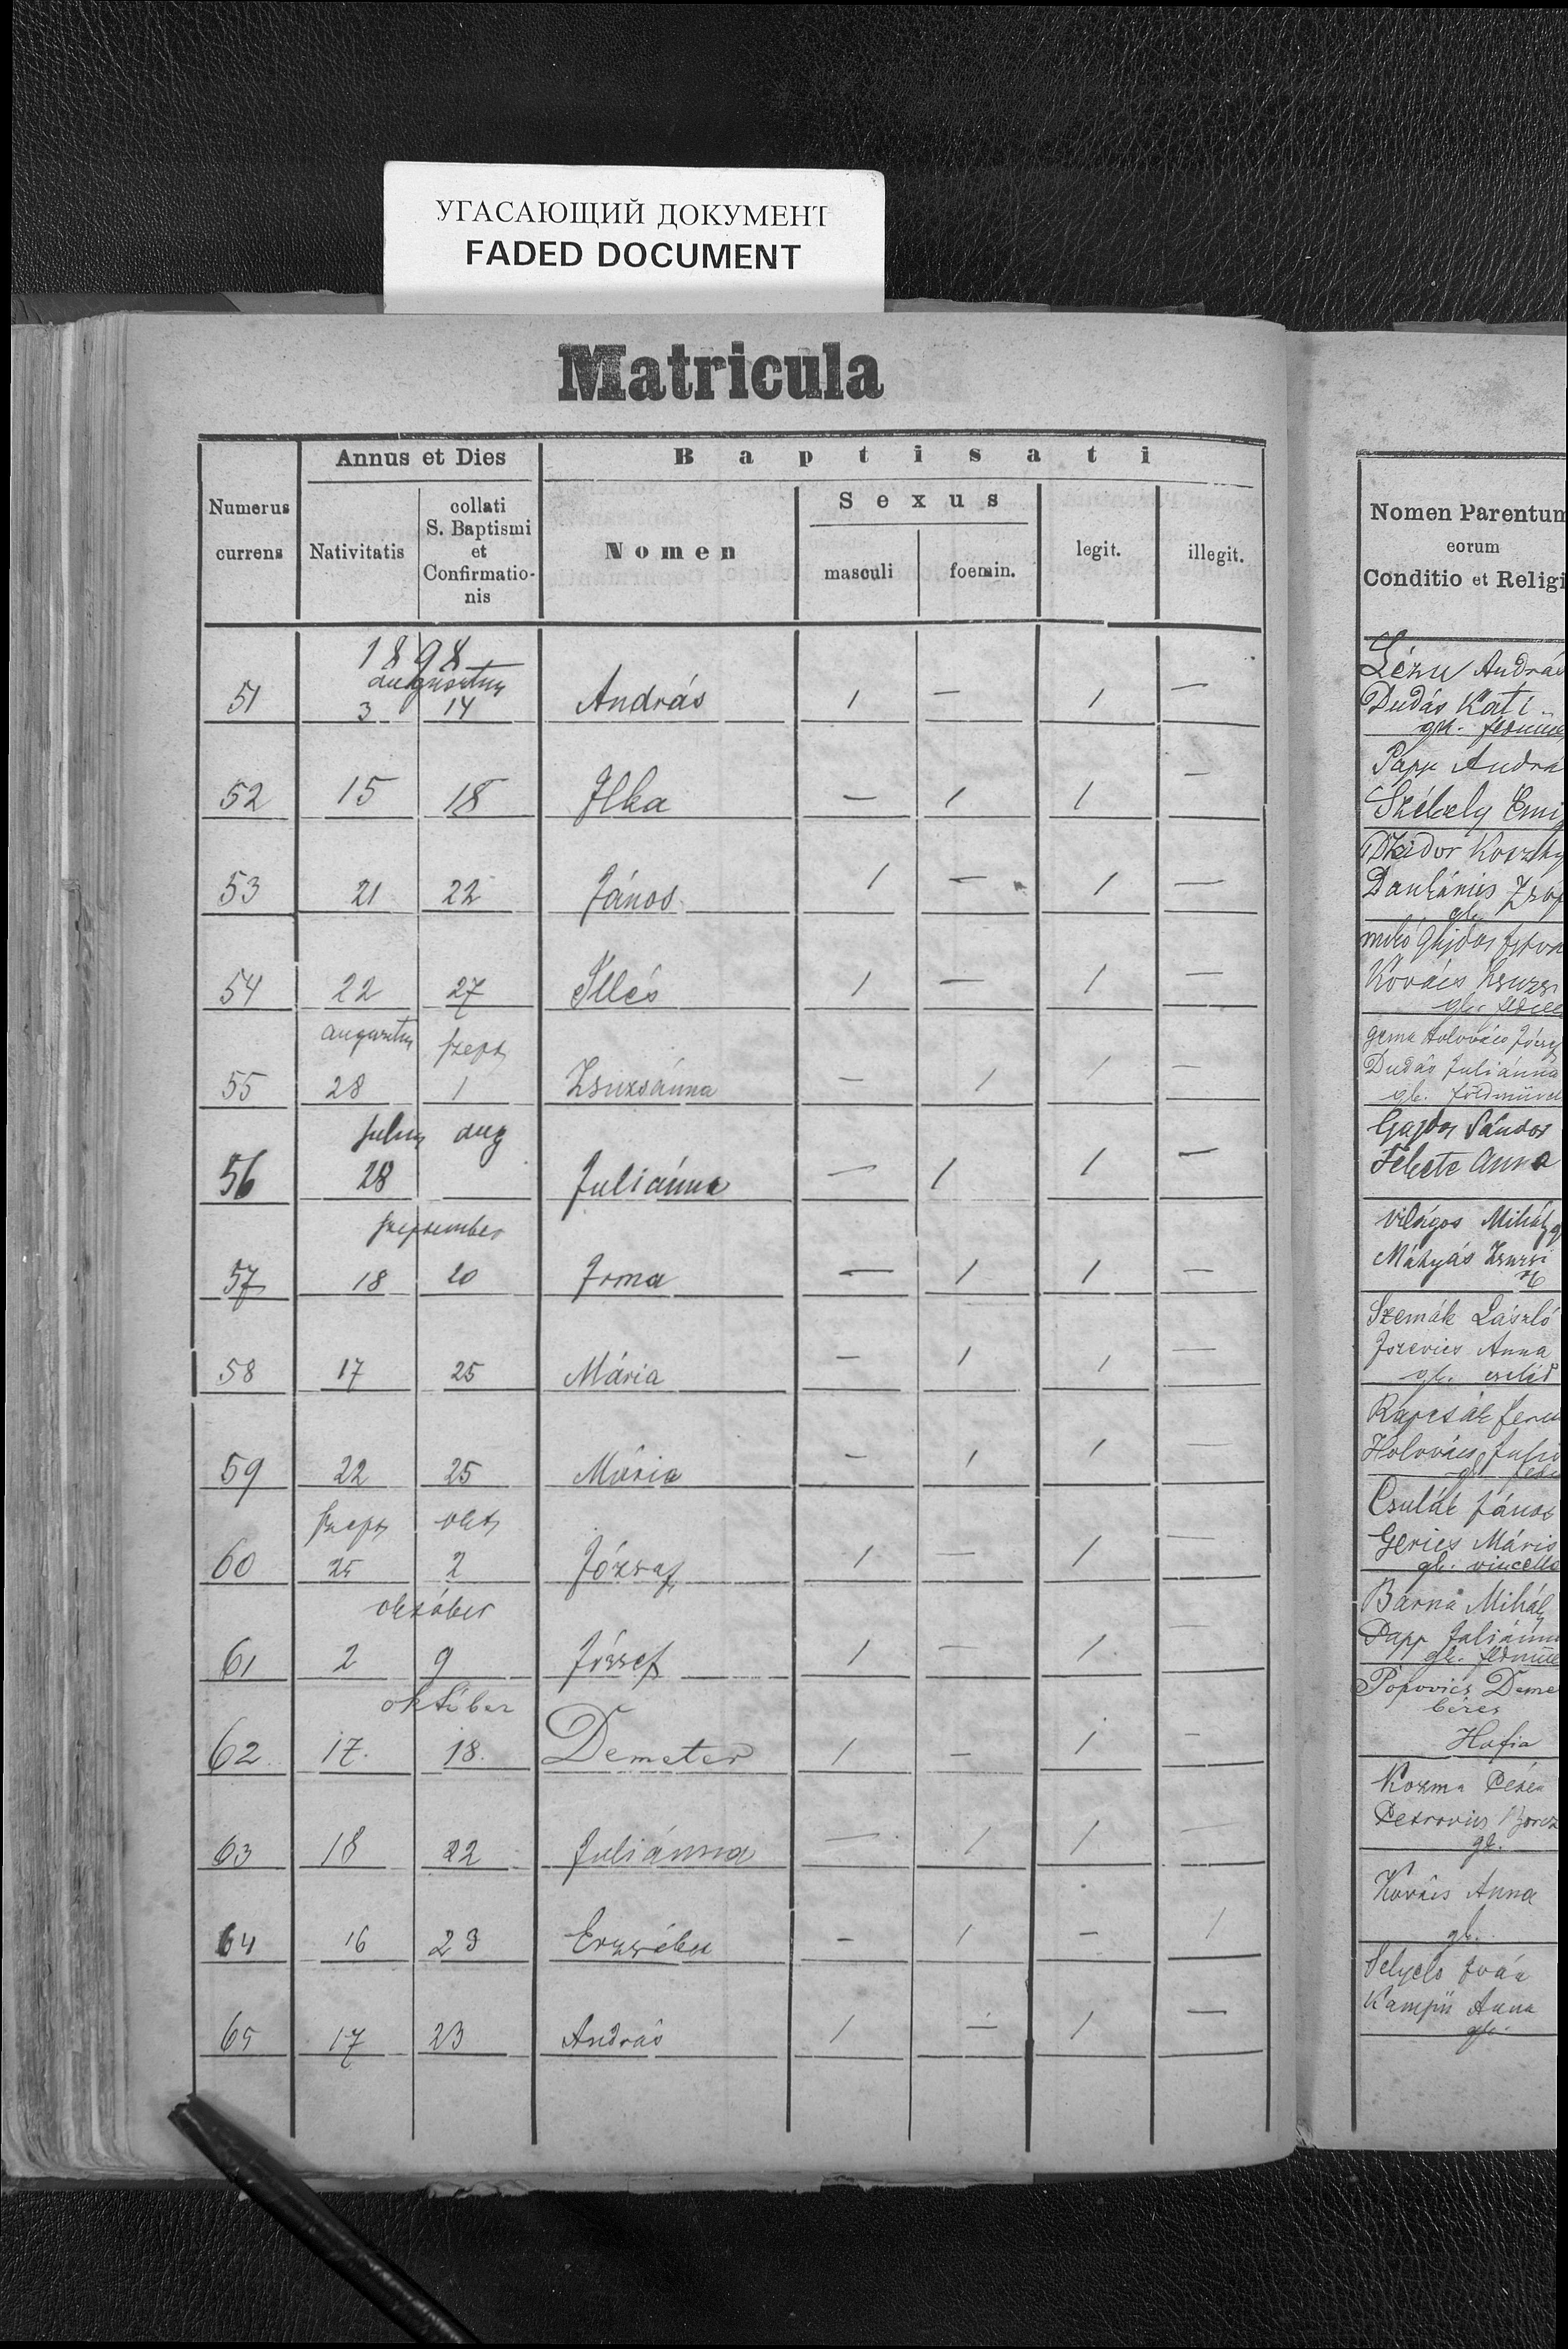 УГАСАЮЩИЙ ДОКУМЕНТ
FADED DOCUMENT
Matricula
Numerus currens
Annus et Dies
Nativitatis
collati
S. Baptismi
et
Confirmatio-
nis
Baptisati
Nomen
Sexus
masculi
foemin.
legit.
illegit.
Nomen Parentum
eorum
Conditio et Religi
1898
augusztus
51 3 14 András 1 — 1 —
András
Dudás Kati
gk.
52 15 18 Ilka — 1 1 —
Papp Andrá
Székely
53 21 22 János 1 — 1 —
gk.
54 22 27 Illés 1 — 1 —
Kovács Zsuzsi
gk.
augusztus szept
55 28 1 Zsuzsánna — 1 1 —
Holovács József
Dudás Juliánna
gk. földmüvel
Julius aug
56 28 Juliánna — 1 1 —
Gajdos Sándor
Fekete Anna
szeptember
57 18 20 Irma — 1 1 —
Világos Mihály
Mátyás Zsuzsi
58 17 25 Mária — 1 1 —
Szemák László
Anna
gk. cseléd
59 22 25 Mária — 1 1 —
Rapcsák Feren
Holovács
gk.
szept okt
60 25 2 József 1 — 1 —
Csulák János
Gerics Mária
gk.
október
61 2 9 József 1 — 1 —
Barna Mihály
Papp Juliánna
gk.
október
62 17. 18. Demeter 1 — 1 —
Popovics Deme
béres
Hafia
63 18 22 Juliánna — 1 1 —
Kozma Péter
Petrovics
gk.
64 16 23 Erzsébet — 1 — 1
Kovács Anna
gk.
65 17 23 András 1 — 1 —
Iván
Anna
gk.